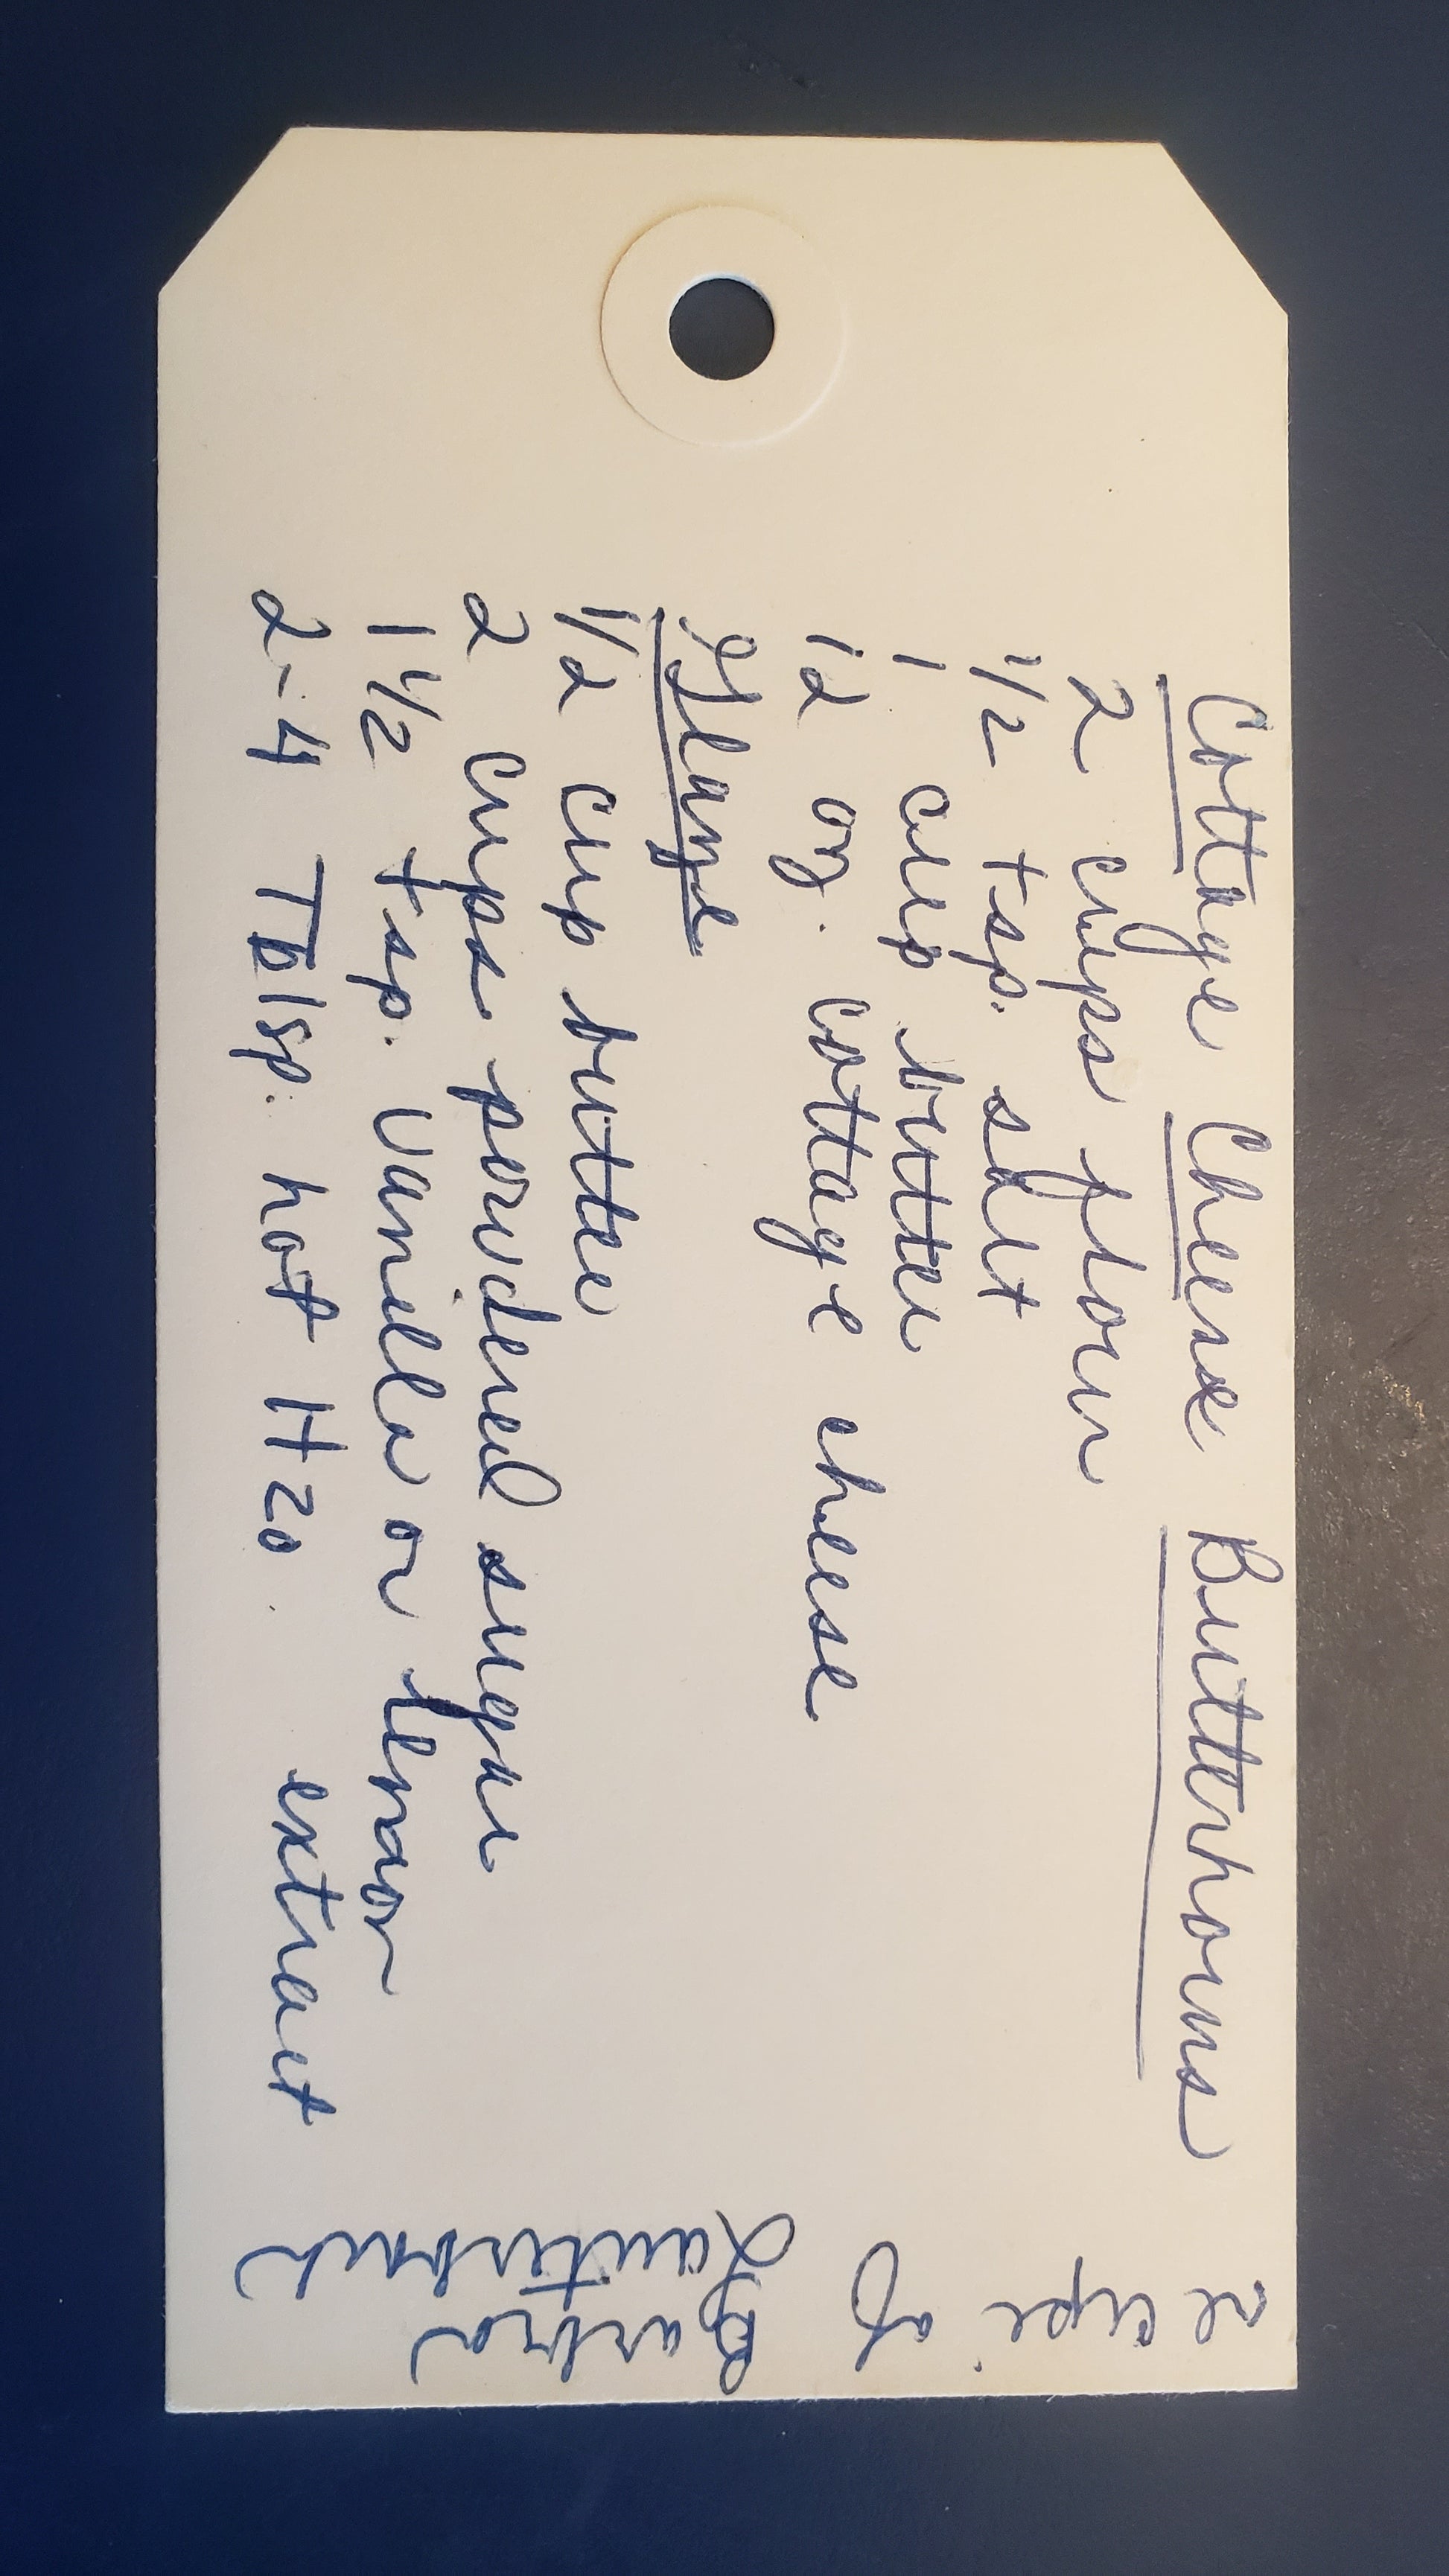 Cottage Cheese Butterhorns
2 cups flour
1/2 tsp. salt
1 cup butter
12 oz. cottage cheese
Glaze
1/2 cup butter
2 cups powdered sugar
1 1/2 tsp. vanilla or lemon
extract
2-4 Tblsp. hot H20
Recipe of
Barbra
Lauterbach